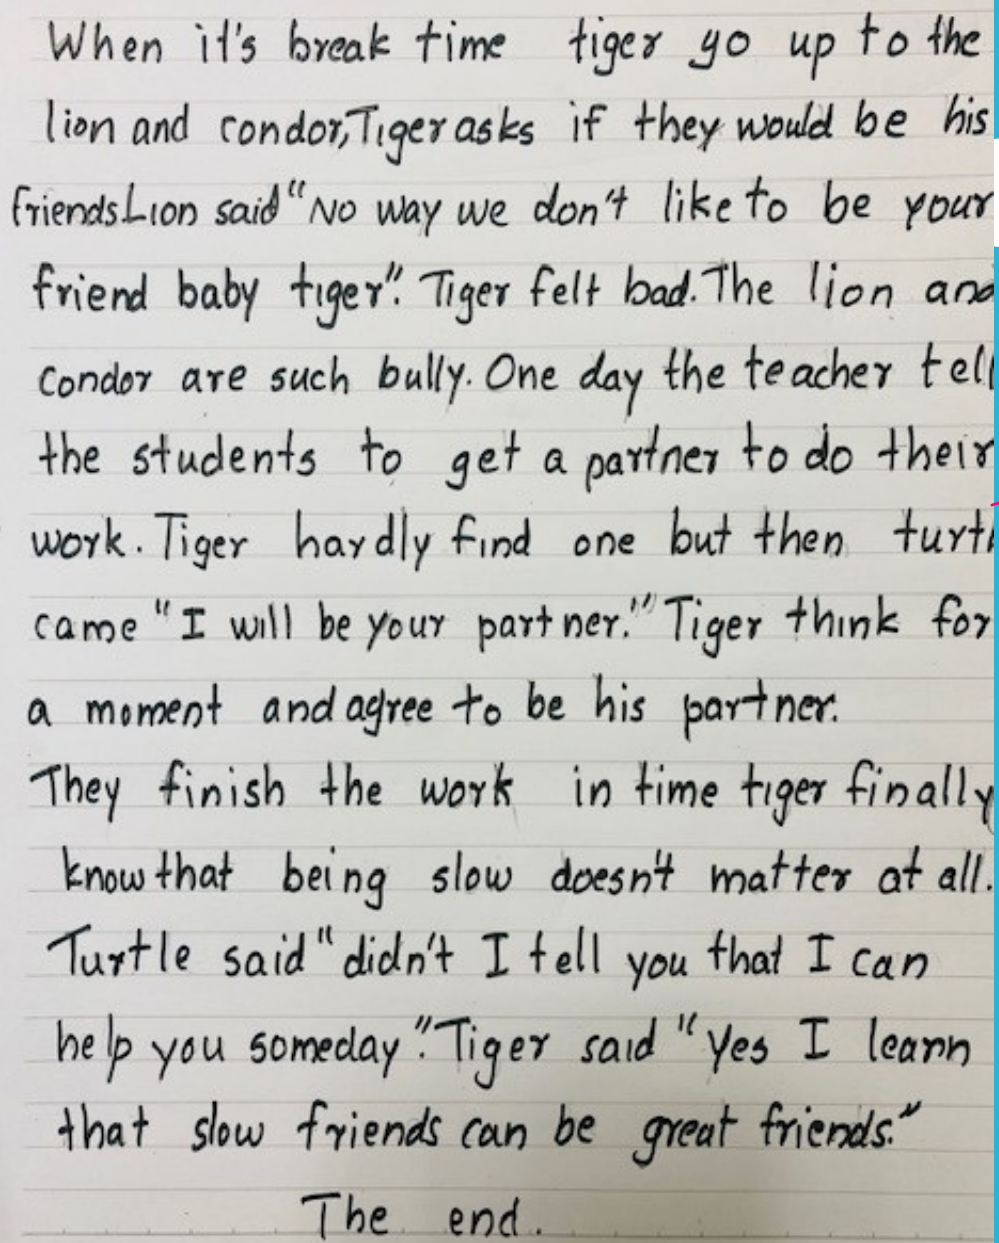 When it's break time tiger go up to the
lion and condor,Tiger asks if they would be his
friends Lion said "No way we don't like to be your
friend baby tiger". Tiger felt bad. The lion and
condor are such bully. One day the teacher tell
the students to get a partner to do their
work. Tiger hardly find one but then
came "I will be your partner." Tiger think for
a moment and agree to be his partner.
They finish the work in time tiger finally
know that being slow doesn't matter at all.
Turtle said "didn't I tell you that I can
help you someday". Tiger said "Yes I learn
that slow friends can be great friends."
The end.